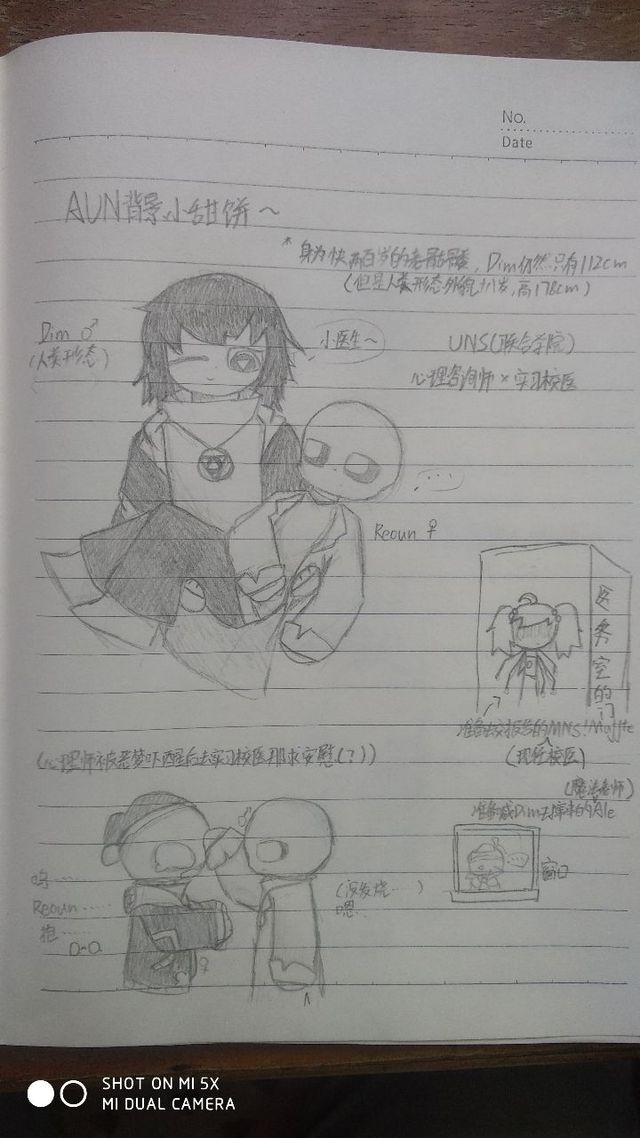 No.
Date
AUN背景小甜饼～
*身为快两百岁的老骷髅，Dim仍然只有112cm
(但是人类形态外貌十八岁，高178cm)
Dim ♂
(人类形态)
小医生～
UNS(联合学院)
心理咨询师×实习校医
...
Reoun ♀
医务室的门
准备去交报告的MNS!Muffte
(现任校医)
(心理师被恶梦吓醒后去实习校医那求安慰(?))
(魔法老师)
准备喊Dim去
来的Ale
窗口
呜……
Reoun……
抱……
♂
♀
(没发烧…)
嗯…
SHOT ON MI 5X
MI DUAL CAMERA